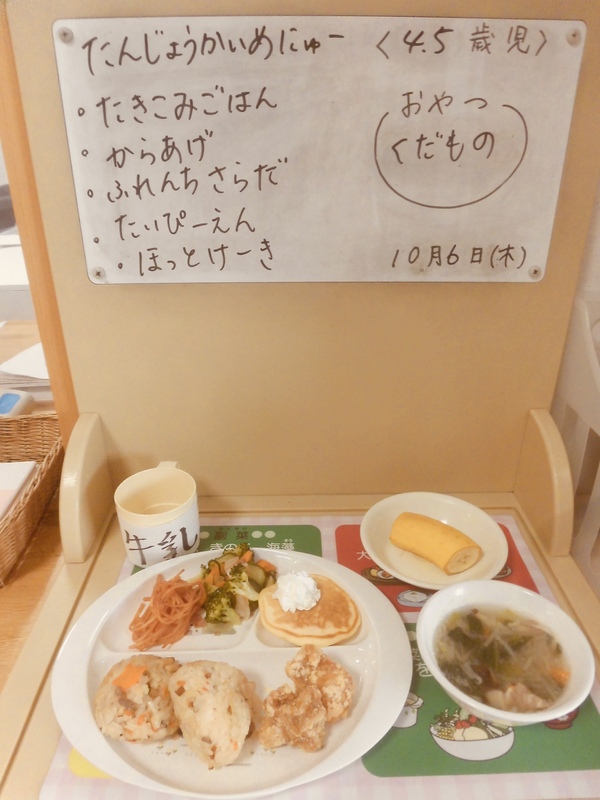 たんじょうかいめにゅー 〈4.5 歳児〉
・たきこみごはん
・からあげ
・ふれんちさらだ
・たいぴーえん
・ほっとけーき
おやつ
くだもの
10月6日(木)
牛乳